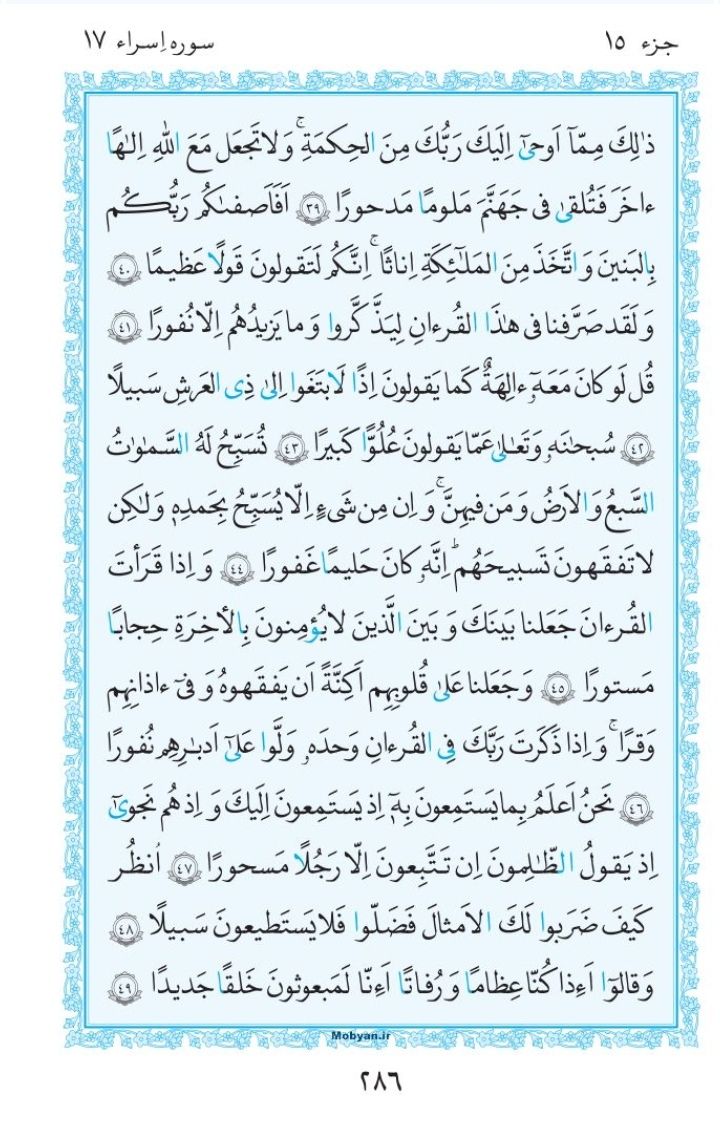 جزء ۱۵
سوره اِسراء ۱۷
ذٰلِكَ مِمّآ اَوحىٰٓ اِلَيكَ رَبُّكَ مِنَ الحِكمَةِ ۚ وَلا تَجعَل مَعَ اللّٰهِ اِلٰهًا
ءاخَرَ فَتُلقىٰ فى جَهَنَّمَ مَلومًا مَدحورًا ﴿٣٩﴾ اَفَاَصفىٰكُم رَبُّكُم
بِالبَنينَ وَ اتَّخَذَ مِنَ المَلٰٓئِكَةِ اِناثًا ۚ اِنَّكُم لَتَقولونَ قَولًا عَظيمًا ﴿٤٠﴾
وَ لَقَد صَرَّفنا فى هٰذَا القُرءانِ لِيَذَّكَّروا وَ ما يَزيدُهُم اِلّا نُفورًا ﴿٤١﴾
قُل لَو كانَ مَعَهٓ ءالِهَةٌ كَما يَقولونَ اِذًا لَابتَغَوا اِلىٰ ذِى العَرشِ سَبيلًا
﴿٤٢﴾ سُبحٰنَه وَ تَعالىٰ عَمّا يَقولونَ عُلُوًّا كَبيرًا ﴿٤٣﴾ تُسَبِّحُ لَهُ السَّمٰوٰتُ
السَّبعُ وَ الاَرضُ وَ مَن فيهِنَّ ۚ وَ اِن مِن شَىءٍ اِلّا يُسَبِّحُ بِحَمدِه وَلٰكِن
لا تَفقَهونَ تَسبيحَهُم ۗ اِنَّه كانَ حَليمًا غَفورًا ﴿٤٤﴾ وَ اِذا قَرَأتَ
القُرءانَ جَعَلنا بَينَكَ وَ بَينَ الَّذينَ لا يُؤمِنونَ بِالأخِرَةِ حِجابًا
مَستورًا ﴿٤٥﴾ وَ جَعَلنا عَلىٰ قُلوبِهِم اَكِنَّةً اَن يَفقَهوهُ وَ فىٓ ءاذانِهِم
وَقرًا ۚ وَ اِذا ذَكَرتَ رَبَّكَ فِى القُرءانِ وَحدَه وَلَّوا عَلىٰٓ اَدبٰرِهِم نُفورًا
﴿٤٦﴾ نَحنُ اَعلَمُ بِما يَستَمِعونَ بِهٓ اِذ يَستَمِعونَ اِلَيكَ وَ اِذ هُم نَجوىٰٓ
اِذ يَقولُ الظّٰلِمونَ اِن تَتَّبِعونَ اِلّا رَجُلًا مَسحورًا ﴿٤٧﴾ اُنظُر
كَيفَ ضَرَبوا لَكَ الاَمثالَ فَضَلّوا فَلا يَستَطيعونَ سَبيلًا ﴿٤٨﴾
وَ قالوٓا اَءِذا كُنّا عِظامًا وَ رُفاتًا اَءِنّا لَمَبعوثونَ خَلقًا جَديدًا ﴿٤٩﴾
Mobyan.ir
۲۸۶